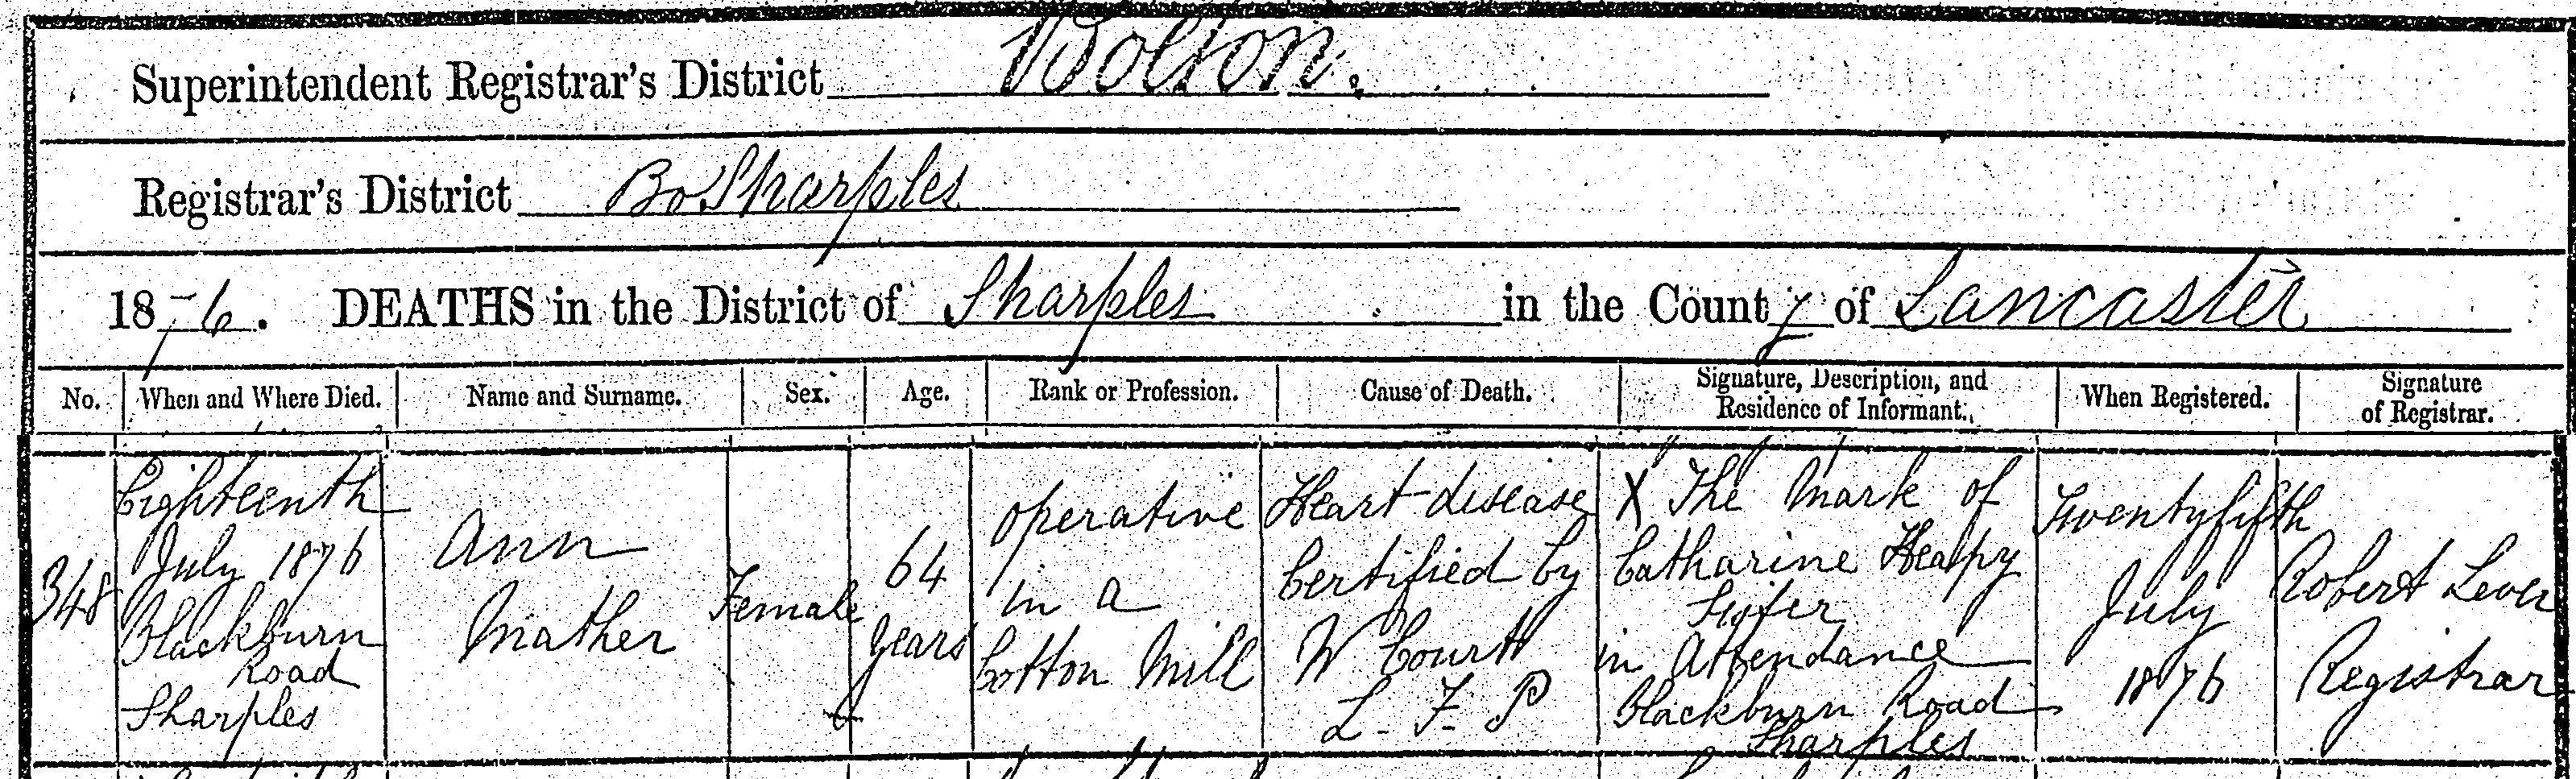 Superintendent Registrar's District Bolton.
Registrar's District Bo Sharples
1876. DEATHS in the District of Sharples in the County of Lancaster
No. When and Where Died. Name and Surname. Sex. Age. Rank or Profession. Cause of Death. Signature, Description, and Residence of Informant. When Registered. Signature of Registrar.
348
Eighteenth
July 1876
Blackburn
Road
Sharples
Ann
Mather
Female
64
years
operative
in a
Cotton Mill
Heart disease
Certified by
W Court
L. F. P
X The Mark of
Catharine Heapy
Sister
in Attendance
Blackburn Road
Sharples
Twentyfifth
July
1876
Robert Lever
Registrar